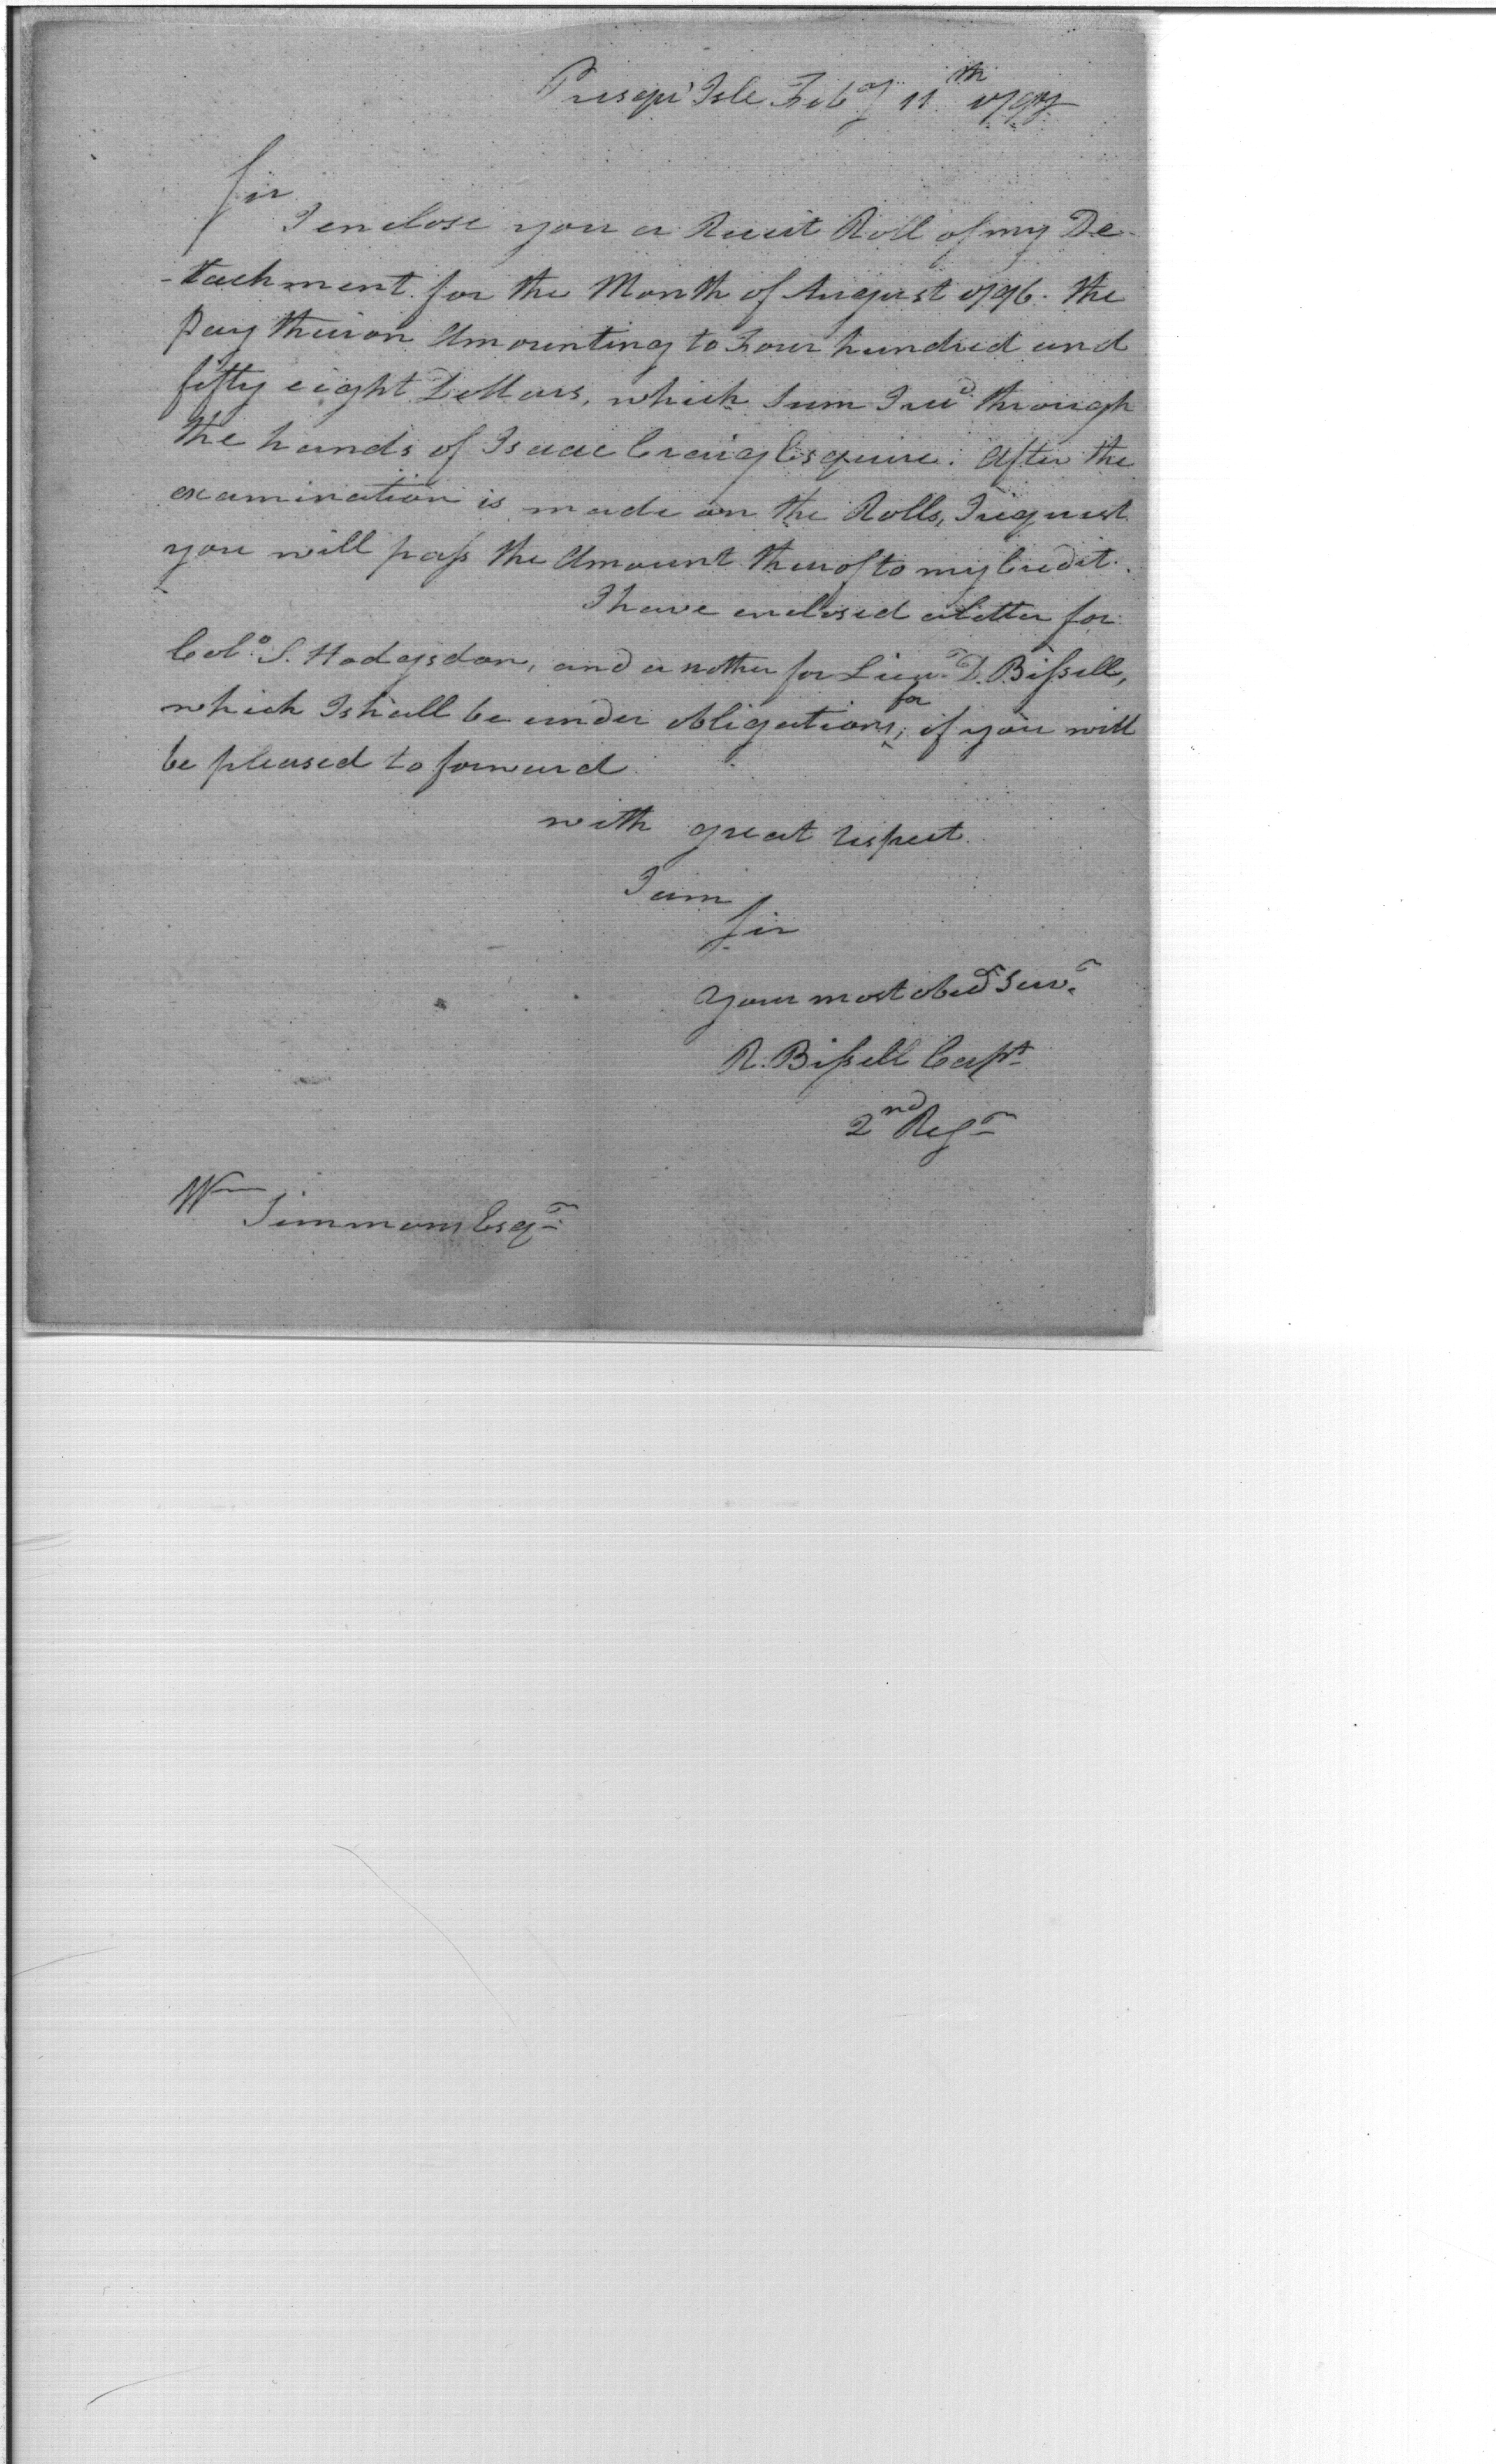 Presqu' Isle Feb.y 11th 1797
Sir
I enclose you a Receit Roll of my De-
-tachment for the Month of August 1796. the
Pay thereon Amounting to Four hundred and
fifty eight Dollars, which Sum I recd. through
the hands of Isaac Craig Esquire. After the
examination is made on the Rolls, I request
you will pass the Amount thereof to my Credit.
I have enclosed a Letter for
Colo. S. Hodgsdon, and another for Lieut. D. Bissell,
which I shall be under obligations, for if you will
be pleased to forward.
with great respect.
I am
Sir
Your most obedt Servt.
R. Bissell Capt.
2nd Regt
Wm Simmons Esqr.